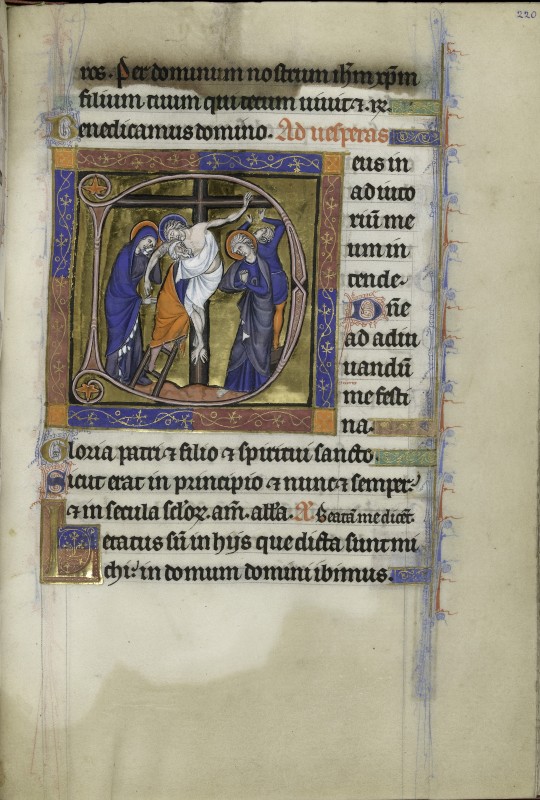 220
ros. Per dominum nostrum ihm xpm
filium tuum qui tecum uiuit ⁊. R.
Benedicamus domino. Ad uesperas
eus in
adiuto
riū me
um in
tende.
Dn̄e
ad adiu
uandū
me festi
na.
Gloria patri ⁊ filio ⁊ spiritui sancto.
Sicut erat in principio ⁊ nunc ⁊ semper:
⁊ in secula sclꝝ. am̄. all'a. A' Beatā me dicēt.
Letatus sū in hijs que dicta sunt mi
chi: in domum domini ibimus.